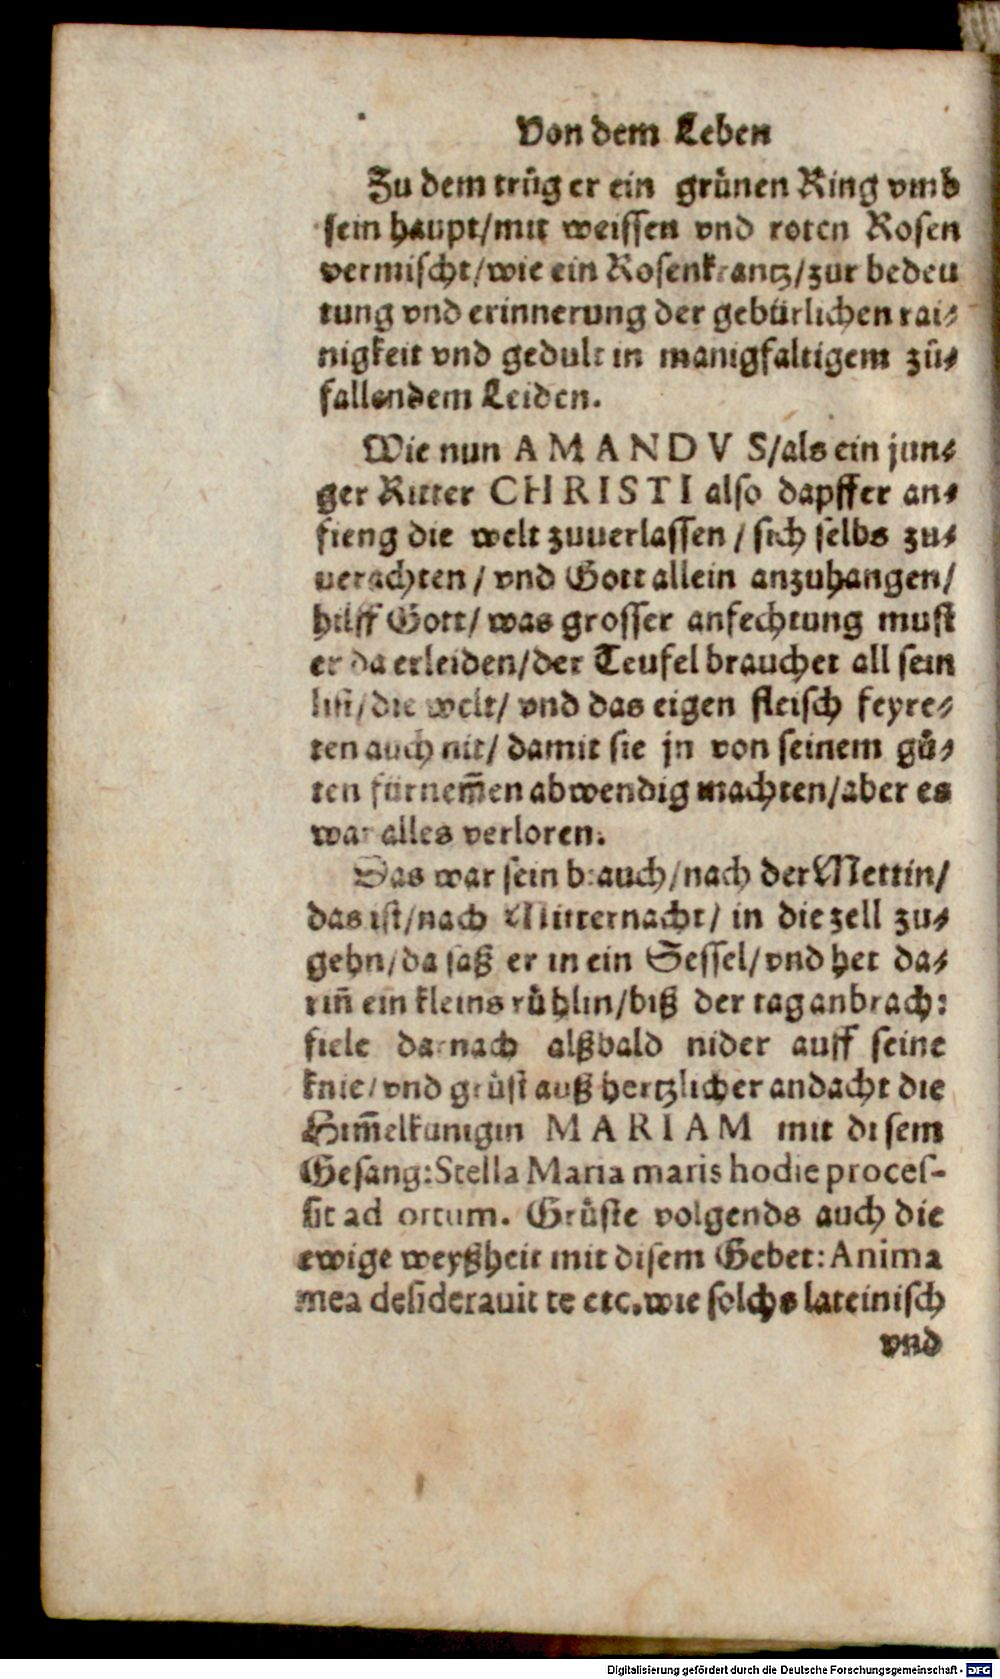 Von dem Leben
Zu dem trůg er ein grůnen Ring vmb
sein haupt/mit weissen vnd roten Rosen
vermischt/wie ein Rosenkrantz/zur bedeu
tung vnd erinnerung der gebürlichen rai-
nigkeit vnd gedult in manigfaltigem zů-
fallendem Leiden.
Wie nun AMANDVS/als ein jun-
ger Ritter CHRISTI also dapffer an-
fieng die welt zuuerlassen/sich selbs zu-
uerachten/vnd Gott allein anzuhangen/
hilff Gott/was grosser anfechtung must
er da erleiden/der Teufel brauchet all sein
list/die welt/vnd das eigen fleisch feyre-
ten auch nit/damit sie jn von seinem gů-
ten fürnem̃en abwendig machten/aber es
war alles verloren.
Das war sein brauch/nach der Mettin/
das ist/nach Mitternacht/in die zell zu-
gehn/da saß er in ein Sessel/vnd het da-
rin̄ ein kleins růhlin/biß der tag anbrach:
fiele darnach alßbald nider auff seine
knie/vnd grůst auß hertzlicher andacht die
Him̃elkünigin MARIAM mit disem
Gesang:Stella Maria maris hodie proces-
sit ad ortum. Grůste volgends auch die
ewige weyßheit mit disem Gebet:Anima
mea desiderauit te etc.wie solchs lateinisch
vnd
Digitalisierung gefördert durch die Deutsche Forschungsgemeinschaft - DFG